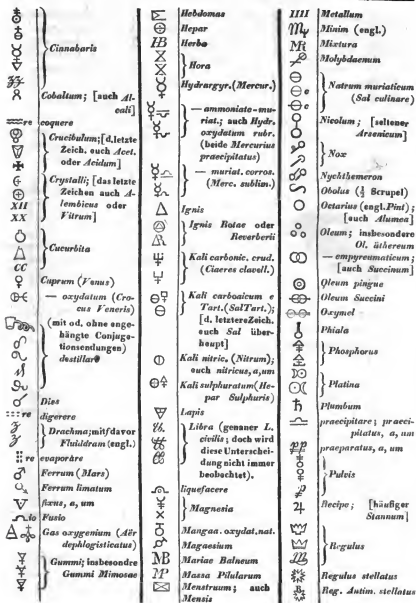 Cinnabaris
Cobaltum; [auch Al-
cali]
re coquere
Crucibulum; [d. letzte
Zeich. auch Acet.
oder Acidum]
Crystalli; [das letzte
Zeichen auch A-
lembicus oder
XII
Vitrum]
XX
Cucurbita
CC
Cuprum (Venus)
— oxydatum (Cro-
cus Veneris)
(mit od. ohne enge-
hängte Conjuga-
tionsendungen)
destillare
Dies
re digerere
Drachma; mit f davor
Fluidram (engl.)
re evaporare
Ferrum (Mars)
Ferrum limatum
fixus, a, um
io Fusio
Gas oxygenium (Aër
dephlogisticatus)
Gummi; insbesondre
Gummi Mimosae
Hebdomas
Hepar
HB Herba
Hora
Hydrargyr. (Mercur.)
— ammoniato-mu-
riat.; auch Hydr.
oxydatum rubr.
(beide Mercurius
praecipitatus)
— muriat. corros.
(Merc. sublim.)
Ignis
Ignis Rotae oder
Reverberii
Kali carbonic. crud.
(Cineres clavell.)
Kali carbonicum e
Tart. (Sal Tart.);
[d. letztere Zeich.
auch Sal über-
haupt]
Kali nitric. (Nitrum);
auch nitricus, a, um
Kali sulphuratum (He-
par Sulphuris)
Lapis
Libra (genauer L.
civilis; doch wird
diese Unterschei-
dung nicht immer
beobachtet).
liquefacere
Magnesia
Mangan. oxydat. nat.
Magnesium
MB Mariae Balneum
MP Massa Pilularum
Menstruum; auch
Mensis
Metallum
Minim (engl.)
Mixtura
Molybdaenum
Natrum muriaticum
(Sal culinare)
Nicolum; [seltener
Arsenicum]
Nox
Nychthemeron
Obolus (½ Scrupel)
Octarius (engl. Pint);
[auch Alumen]
Oleum; insbesondere
Ol. äthereum
— empyreumaticum;
[auch Succinum]
Oleum pingue
Oleum Succini
Oxymel
Phiala
Phosphorus
Platina
Plumbum
praecipitare; praeci-
pitatus, a, um
pp praeparatus, a, um
Pulvis
Recipe; [häufiger
Stannum]
Regulus
Regulus stellatus
Reg. Antim. stellatus